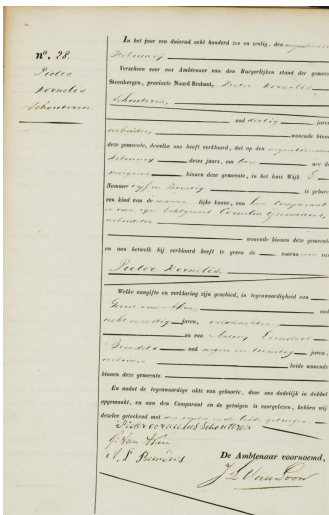 nº. 28.
Pieter
Kornelis
Schouteren.
In het jaar een duizend acht honderd zes en zestig, den negentienden
Februarij
Verscheen voor ons Ambtenaar van den Burgerlijken stand der gemeente
Steenbergen, provincie Noord-Brabant, Pieter Kornelis
Schouteren,
oud dertig jaren
arbeider wonende binnen
deze gemeente, dewelke ons heeft verklaard, dat op den negentienden
Februarij dezes jaars, om tien ure des
morgens binnen deze gemeente, in het huis Wijk E
Nommer vijf en twintig is geboren
een kind van de mannelijke kunne, van hem Comparant
en van zijne Echtgenoot
arbeidster
wonende binnen deze gemeente
en aan hetwelk hij verklaard heeft te geven de voornamen van
Pieter Kornelis.
Welke aangifte en verklaring zijn geschied, in tegenwoordigheid van
oud
jaren, veldwachter
en van Antony
oud negen en twintig jaren,
beide wonende
binnen deze gemeente.
En nadat de tegenwoordige akte van geboorte, door ons dadelijk in dubbel
opgemaakt, en aan den Comparant en de getuigen is voorgelezen, hebben wij
dezelve geteekend met den vader en de beide getuigen.
Pieter cornelis Schouteren
De Ambtenaar voornoemd,